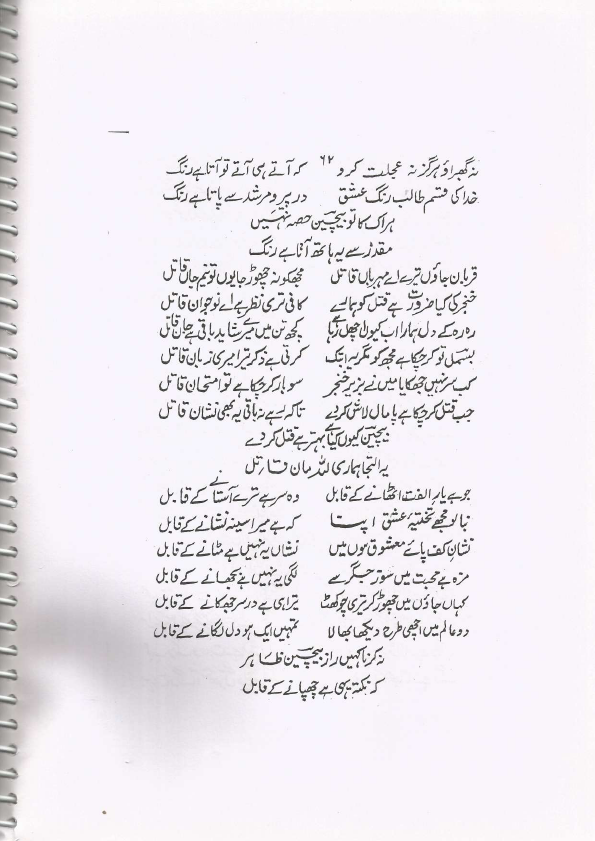 ۶۲
نہ گھبراؤ ہرگز نہ عجلت کرو کہ آتے ہی آتے تو آتا ہے رنگ
خدا کی قسم طالب رنگ عشق در پیر و مرشد سے پاتا ہے رنگ
ہر اک کا تو بیچین حصہ نہیں
مقدر سے یہ ہاتھ آتا ہے رنگ
قربان جاؤں تیرے اے مہرباں قاتل مجھکو نہ چھوڑ جا یوں تو نیم جاں قاتل
خنجر کی کیا ضرورت ہے قتل کو ہمارے کافی تری نظر ہے اے نوجوان قاتل
رہ رہ کے دل ہمارا اب کیوں اچھل رہا ہے کچھ تن میں میرے شاید باقی ہے جان قاتل
بسمل تو کر چکا ہے مجھ کو مگر یہ ابتک کرتی ہے ذکر تیرا میری زبان قاتل
کب سر نہیں جھکایا میں نے بزیر خنجر سو بار کر چکا ہے تو امتحان قاتل
جب قتل کر چکا ہے پامال لاش کر دے تاکہ رہے نہ باقی یہ بھی نشان قاتل
بیچین کیوں کیا ہے بہتر ہے قتل کر دے
یہ التجا ہماری للہ مان قاتل
جو ہے یا بار الفت اٹھانے کے قابل وہ سر ہے ترے آستانے کے قابل
بنا لو مجھے تختیۂ عشق اپنا کہ ہے میرا سینہ نشانے کے قابل
نشان کف پائے معشوق ہوں میں نشاں یہ نہیں ہے مٹانے کے قابل
مزہ ہے محبت میں سوز جگر سے لگی یہ نہیں ہے بجھانے کے قابل
کہاں جاؤں میں چھوڑ کر تیری چوکھٹ ترا ہی ہے در سر جھکانے کے قابل
دو عالم میں اچھی طرح دیکھا بھالا تمہیں ایک ہو دل لگانے کے قابل
نہ کرنا کہیں راز بیچین ظاہر
کہ نکتہ یہی ہے چھپانے کے قابل